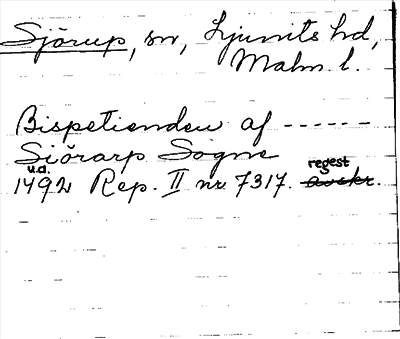 Sjörup, sn, Ljunits hd,
Malm. l.
Bispetienden af ------
Siörarp Sogne
u.d. regest
1492 Rep. II nr 7317. avskr.